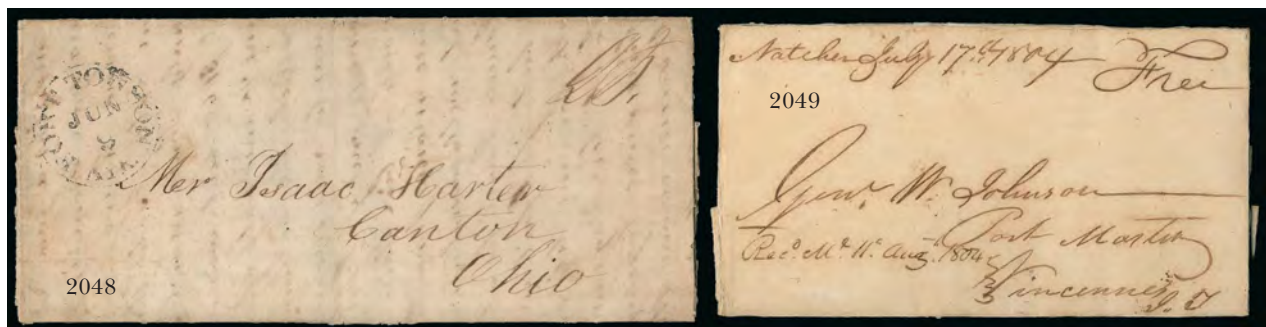 JUN
8
25.
Mr Isaac Harter
Canton
Ohio
2048
Natchez July 17th 1804 Free
2049
Genl W. Johnson
Post Master
Recd Aug. 1804
Vincennes
I. T